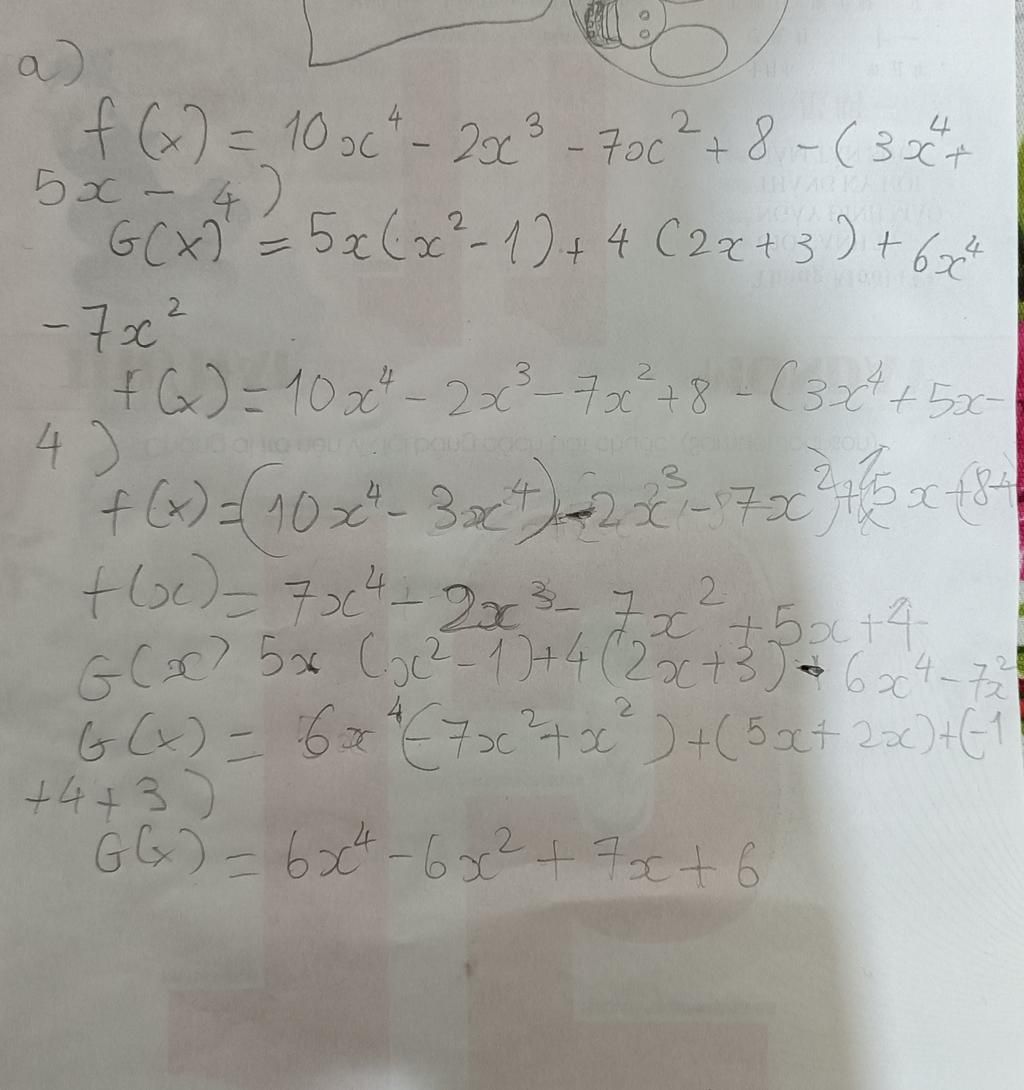 a)
f(x) = 10x⁴ - 2x³ - 7x² + 8 - (3x⁴ +
5x - 4)
G(x) = 5x(x² - 1) + 4 (2x + 3) + 6x⁴
- 7x²
f(x) = 10x⁴ - 2x³ - 7x² + 8 - (3x⁴ + 5x -
4)
f(x) = (10x⁴ - 3x⁴) - 2x³ - 7x² + 5x + (8 - 4
f(x) = 7x⁴ - 2x³ - 7x² + 5x + 4
G(x) 5x (x² - 1) + 4 (2x + 3) + 6x⁴ - 7x²
G(x) = 6x⁴ (-7x² + x²) + (5x + 2x) + (-1
+ 4 + 3)
G(x) = 6x⁴ - 6x² + 7x + 6